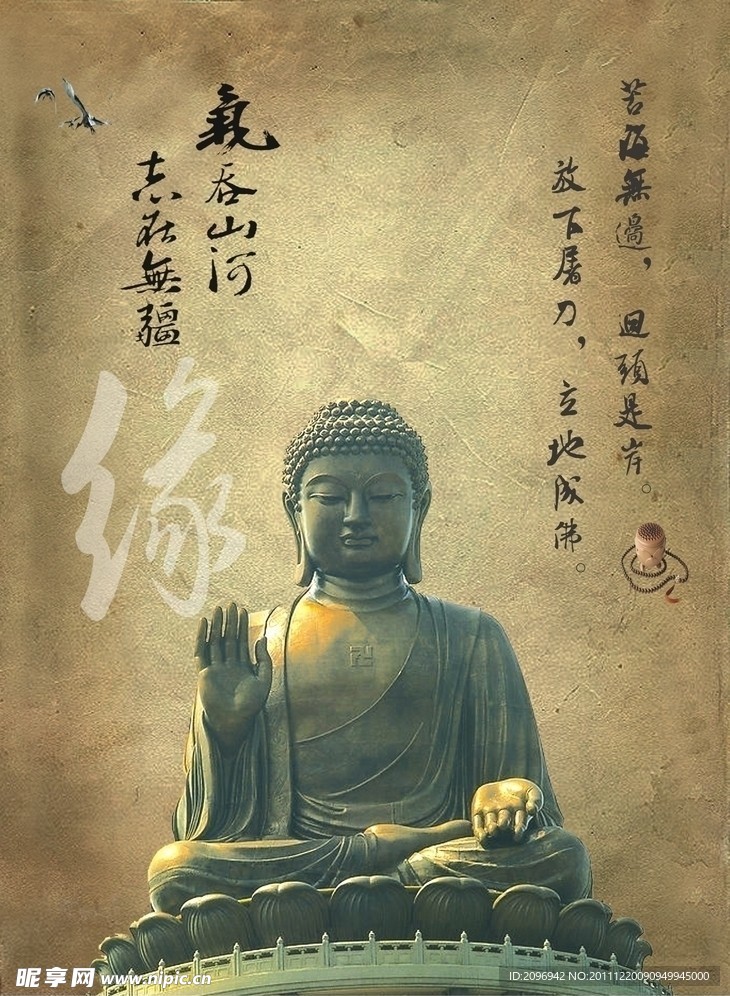 苦海無邊，回頭是岸。
放下屠刀，立地成佛。
氣吞山河
志在無疆
缘
昵享网 www.nipic.cn
ID:2096942 NO:20111220090949945000